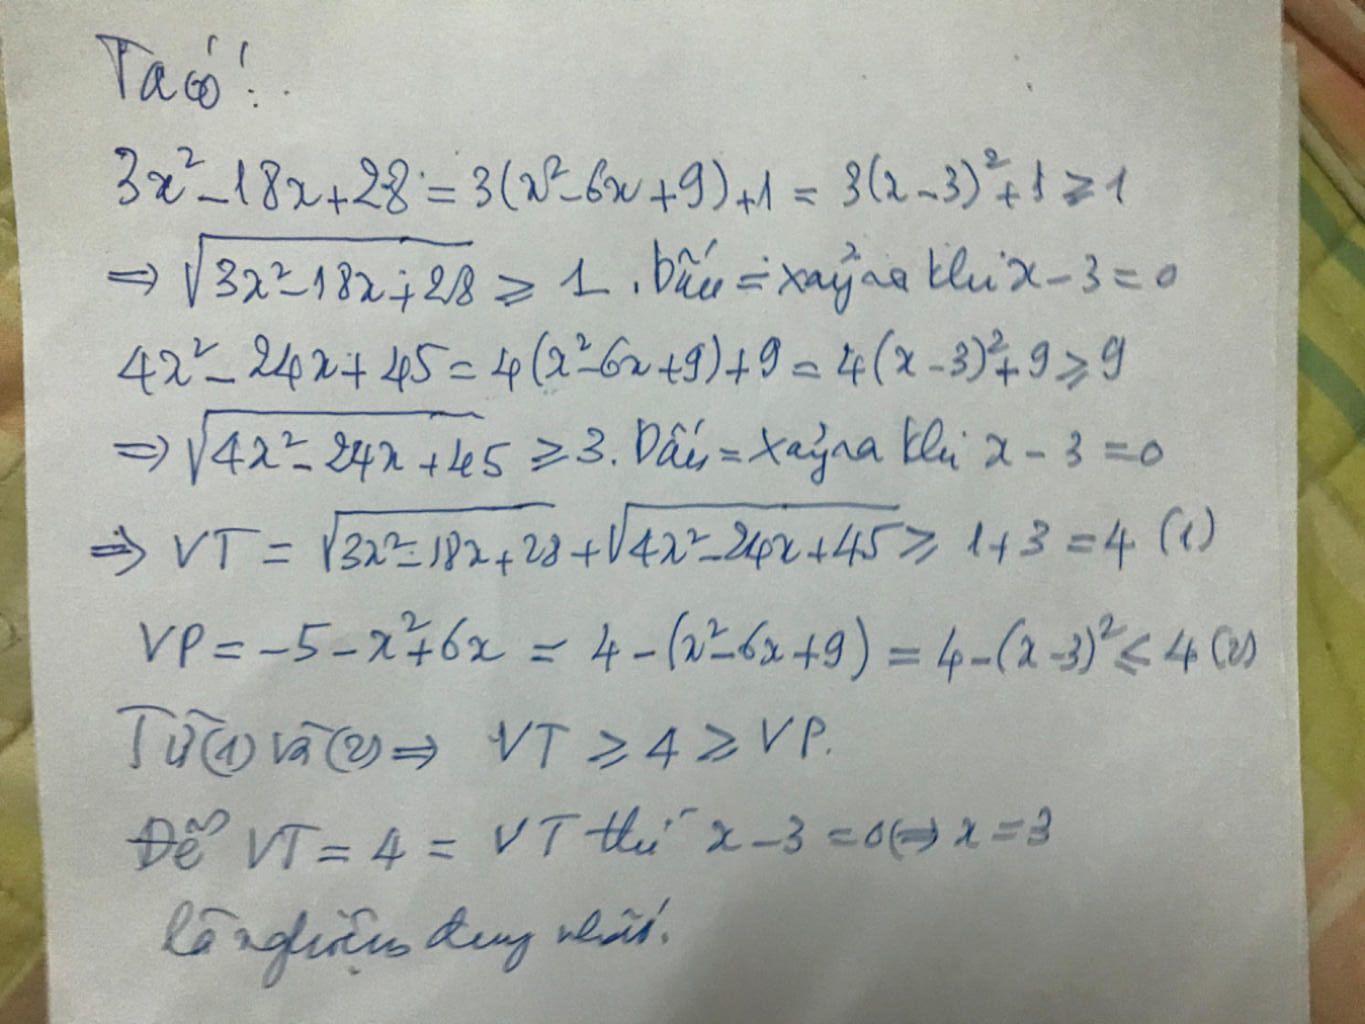 Ta có:
3x² - 18x + 28 = 3(x² - 6x + 9) + 1 = 3(x - 3)² + 1 ≥ 1
⇒ √(3x² - 18x + 28) ≥ 1. Dấu = xảy ra khi x - 3 = 0
4x² - 24x + 45 = 4(x² - 6x + 9) + 9 = 4(x - 3)² + 9 ≥ 9
⇒ √(4x² - 24x + 45) ≥ 3. Dấu = xảy ra khi x - 3 = 0
⇒ VT = √(3x² - 18x + 28) + √(4x² - 24x + 45) ≥ 1 + 3 = 4 (1)
VP = -5 - x² + 6x = 4 - (x² - 6x + 9) = 4 - (x - 3)² ≤ 4 (2)
Từ (1) và (2) ⇒ VT ≥ 4 ≥ VP.
Để VT = 4 = VT thì x - 3 = 0 ⇔ x = 3
là nghiệm duy nhất.